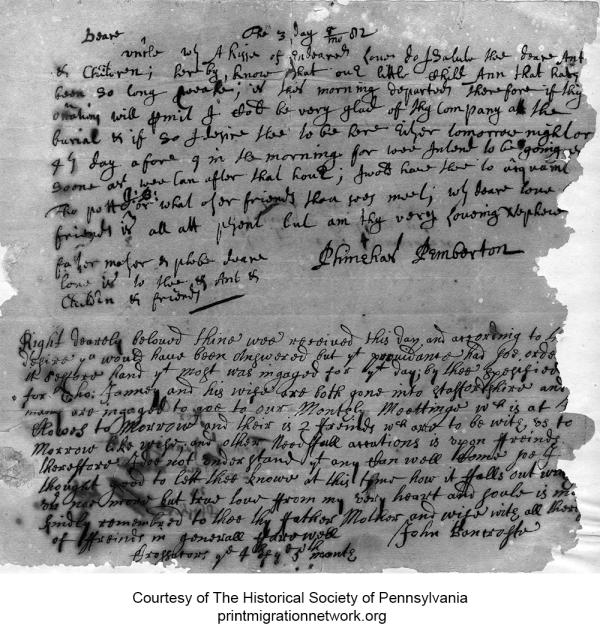 Deare The 3 day 5/mo 82
uncle wth A kisse of endeared love do I salute thee deare Ant
& Children; hereby know that our little Child Ann that hath
been so long weake; is this morning departed therefore if thy
will I shod be very glad of thy Company att the
burial & if so I desire thee to be here Either tomorrow night or
4th day afore 9 in the morning for wee Intend to be going as
soone as wee Can after that hour; I wod have thee to aquaint
Tho pott or what other friends thou sees meet; wth deare love
friends is all att psent but am thy very loveing Nephew
Phinehas Pemberton
father mother & phebe deare
love is to thee & Ant &
Children & friends
Right dearely beloved thine wee received this day, and according to
desire ya would have been Answered but yt providance had soe orde
it before hand yt most was ingaged for yt day; by thee
for Tho: Janney and his wife are both gone into Staffordshire and
many are ingaged to goe to our Monthly Meettinge wch is at
to Morrow and their is 2 ffreinds wch are to be with us to
Morrow likewise, and other Needfull ocations is upon ffreinds
thereffore I doe not understand yt any Can well Come soe I
thought good to lett thee knowe it this time how it ffalls out
noe more but true love ffrom my very heart and soule is
kindly remembred to thee thy ffather Mother and wife with all
of ffreinds in generall ffarewell John Bancrofte
ye 4 of ye 5th month
Courtesy of The Historical Society of Pennsylvania
printmigrationnetwork.org